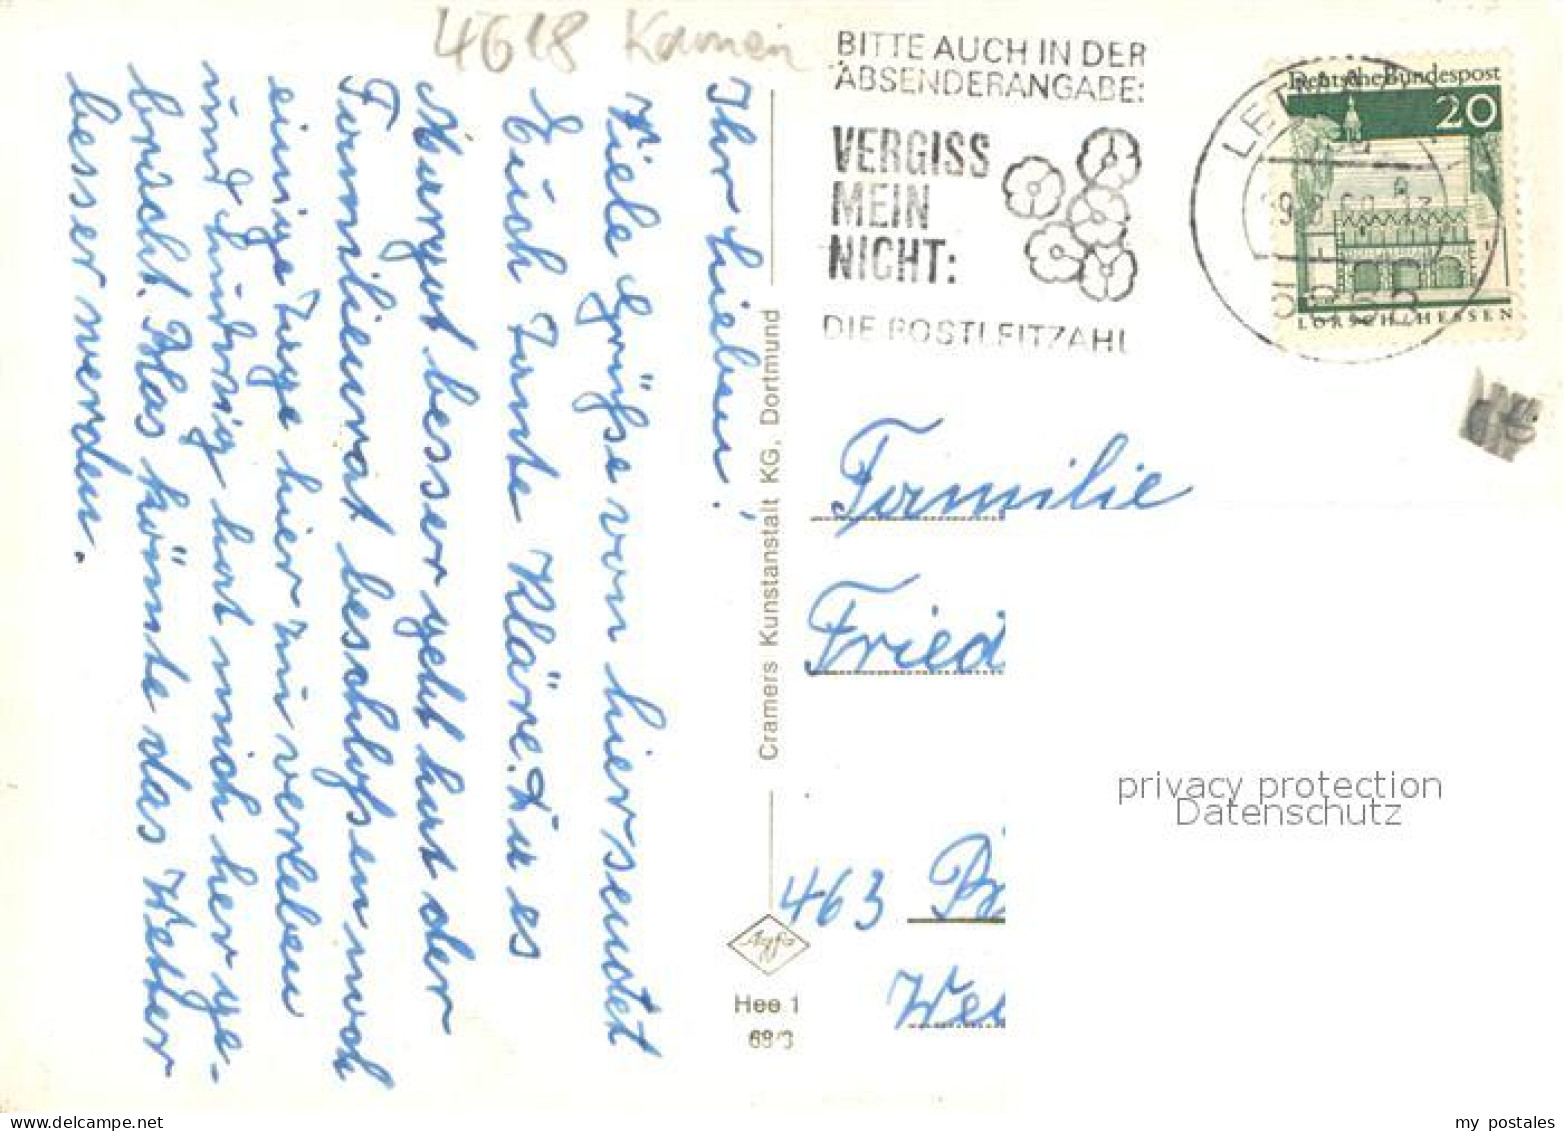 4618 Kamen
BITTE AUCH IN DER
ABSENDERANGABE:
VERGISS
MEIN
NICHT:
DIE POSTLEITZAHL
Deutsche Bundespost
20
LORSCH/HESSEN
5885
Ihr Lieben!
Viele Grüße von hier sendet
Euch Tante Kläre. Da es
Margot besser geht hat der
Familienrat beschloßen noch
einige Tage hier zu verleben
und Ludwig hat mich her ge-
bracht. Blos könnte das Wetter
besser werden.
Cramers Kunstanstalt KG, Dortmund
Agfa
Hee 1
68/3
Familie
Fried
463
privacy protection
Datenschutz
my postales